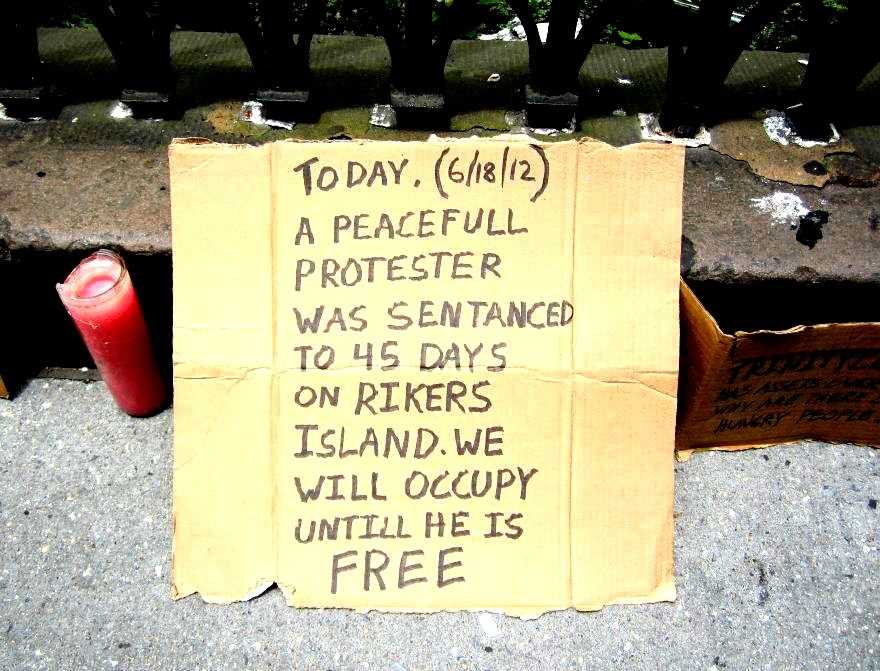 TODAY. (6/18/12)
A PEACEFULL
PROTESTER
WAS SENTANCED
TO 45 DAYS
ON RIKERS
ISLAND. WE
WILL OCCUPY
UNTILL HE IS
FREE
HAS ASSETS
WHY ARE THERE
HUNGRY PEOPLE